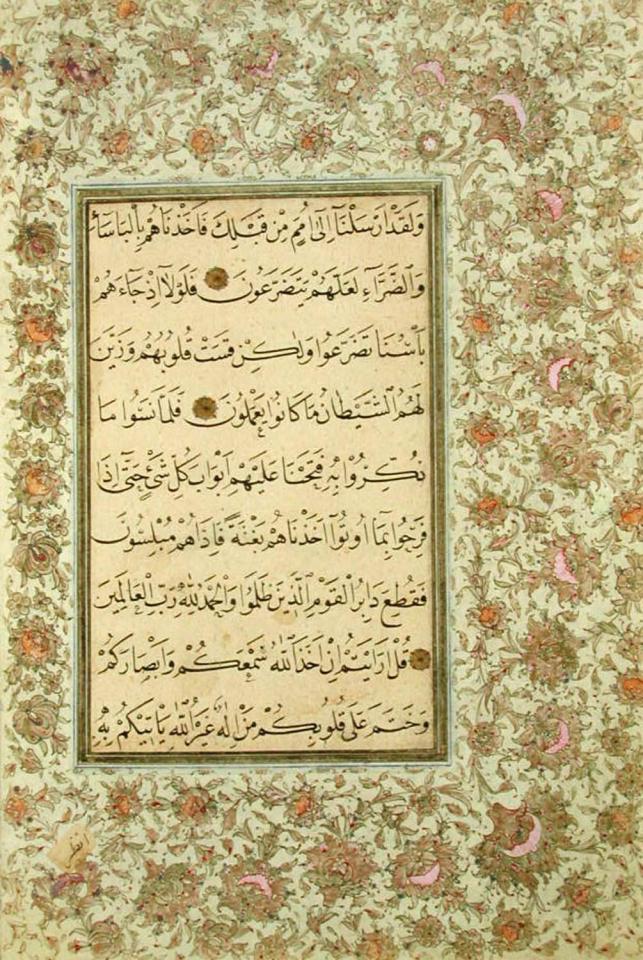 وَلَقَدْ اَرْسَلْنَٓا اِلٰٓى اُمَمٍ مِنْ قَبْلِكَ فَاَخَذْنَاهُمْ بِالْبَاْسَٓاءِ
وَالضَّرَّٓاءِ لَعَلَّهُمْ يَتَضَرَّعُونَ فَلَوْلَٓا اِذْ جَٓاءَهُمْ
بَاْسُنَا تَضَرَّعُوا وَلٰكِنْ قَسَتْ قُلُوبُهُمْ وَزَيَّنَ
لَهُمُ الشَّيْطَانُ مَا كَانُوا يَعْمَلُونَ فَلَمَّا نَسُوا مَا
ذُكِّرُوا بِهِ فَتَحْنَا عَلَيْهِمْ اَبْوَابَ كُلِّ شَيْءٍ حَتّٰٓى اِذَا
فَرِحُوا بِمَٓا اُوتُٓوا اَخَذْنَاهُمْ بَغْتَةً فَاِذَا هُمْ مُبْلِسُونَ
فَقُطِعَ دَابِرُ الْقَوْمِ الَّذِينَ ظَلَمُوا وَالْحَمْدُ لِلّٰهِ رَبِّ الْعَالَمِينَ
قُلْ اَرَاَيْتُمْ اِنْ اَخَذَ اللّٰهُ سَمْعَكُمْ وَاَبْصَارَكُمْ
وَخَتَمَ عَلٰى قُلُوبِكُمْ مَنْ اِلٰهٌ غَيْرُ اللّٰهِ يَاْتِيكُمْ بِهِ